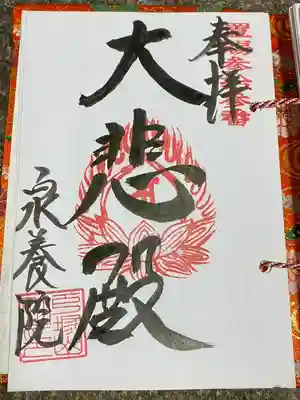 奉拝
大悲殿
泉養院